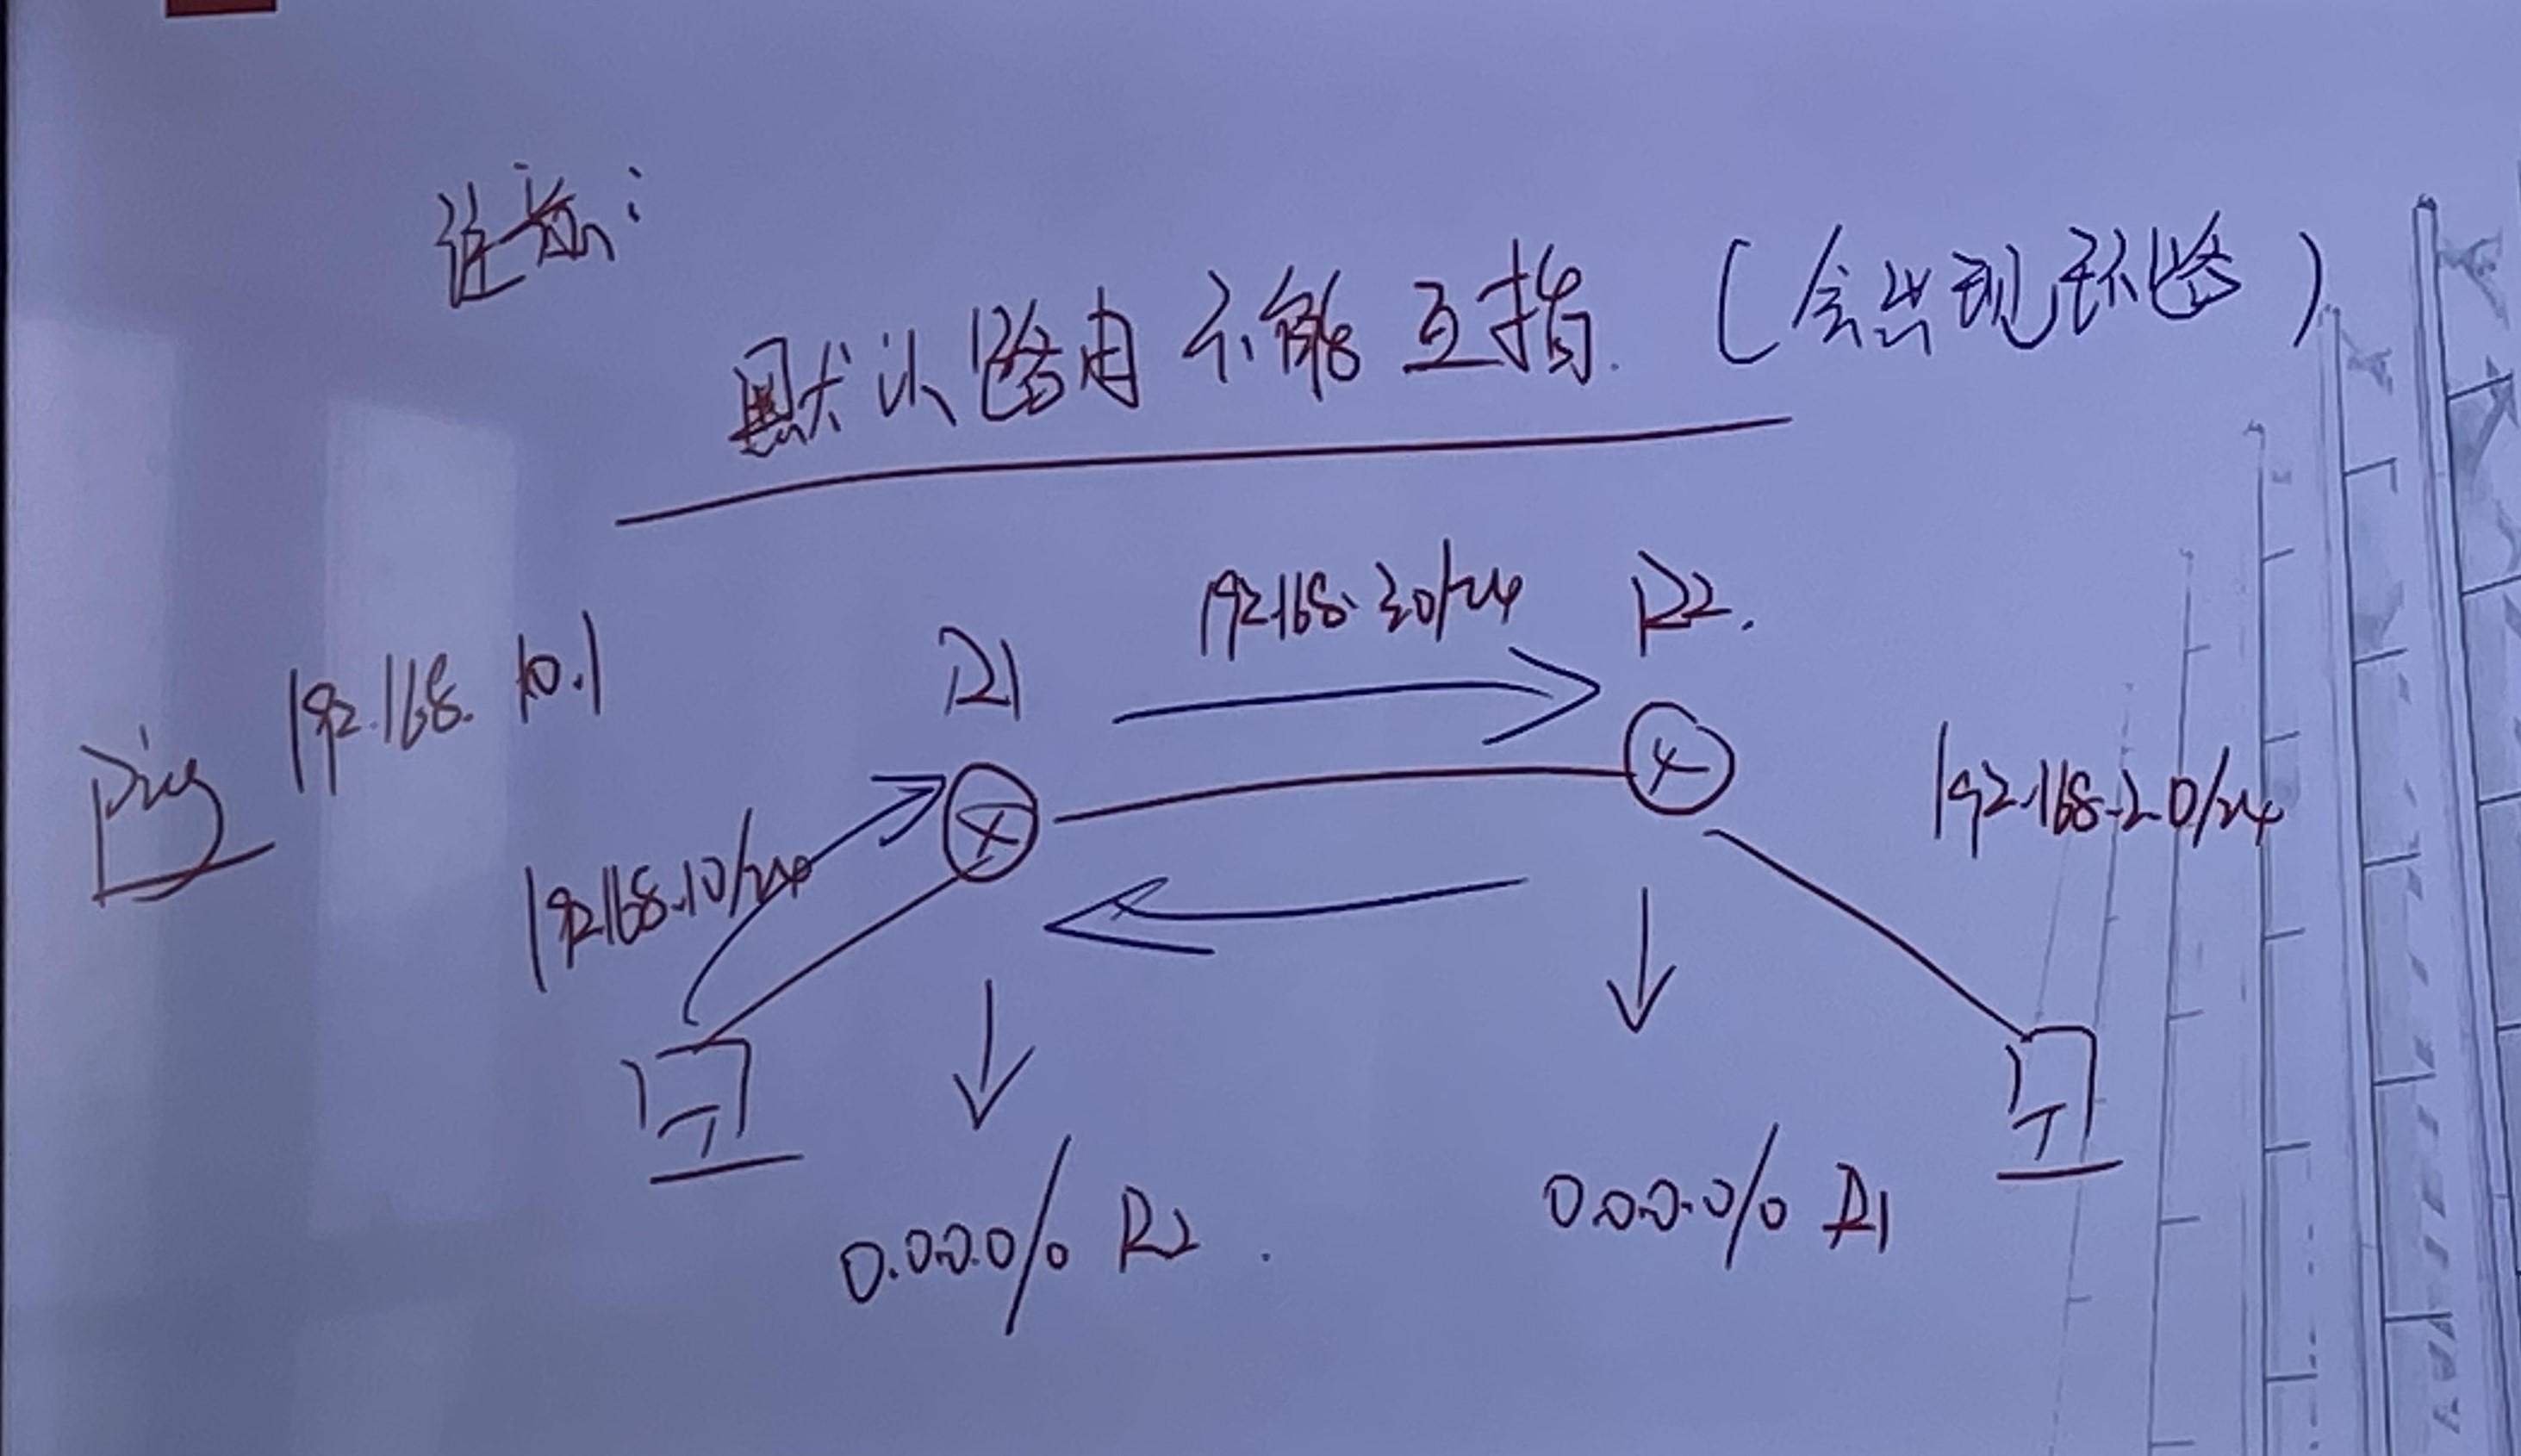 注意:
默认路由不能互指. (会出现环路)
192.168.3.0/24
R2.
R1
Ping 192.168.10.1
192.168.1.0/24
192.168.2.0/24
0.0.0.0/0 R2.
0.0.0.0/0 R1